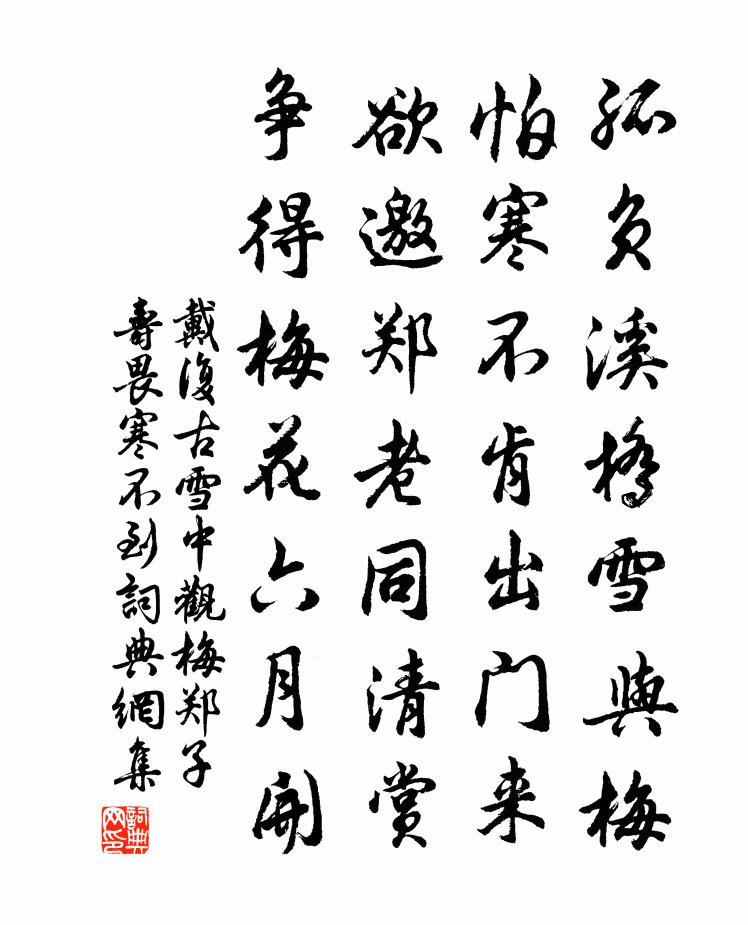 孤负溪橋雪與梅
怕寒不肯出门来
欲邀郑老同清赏
争得梅花六月開
戴復古雪中觀梅郑子
壽畏寒不到詞典網集
詞典网印